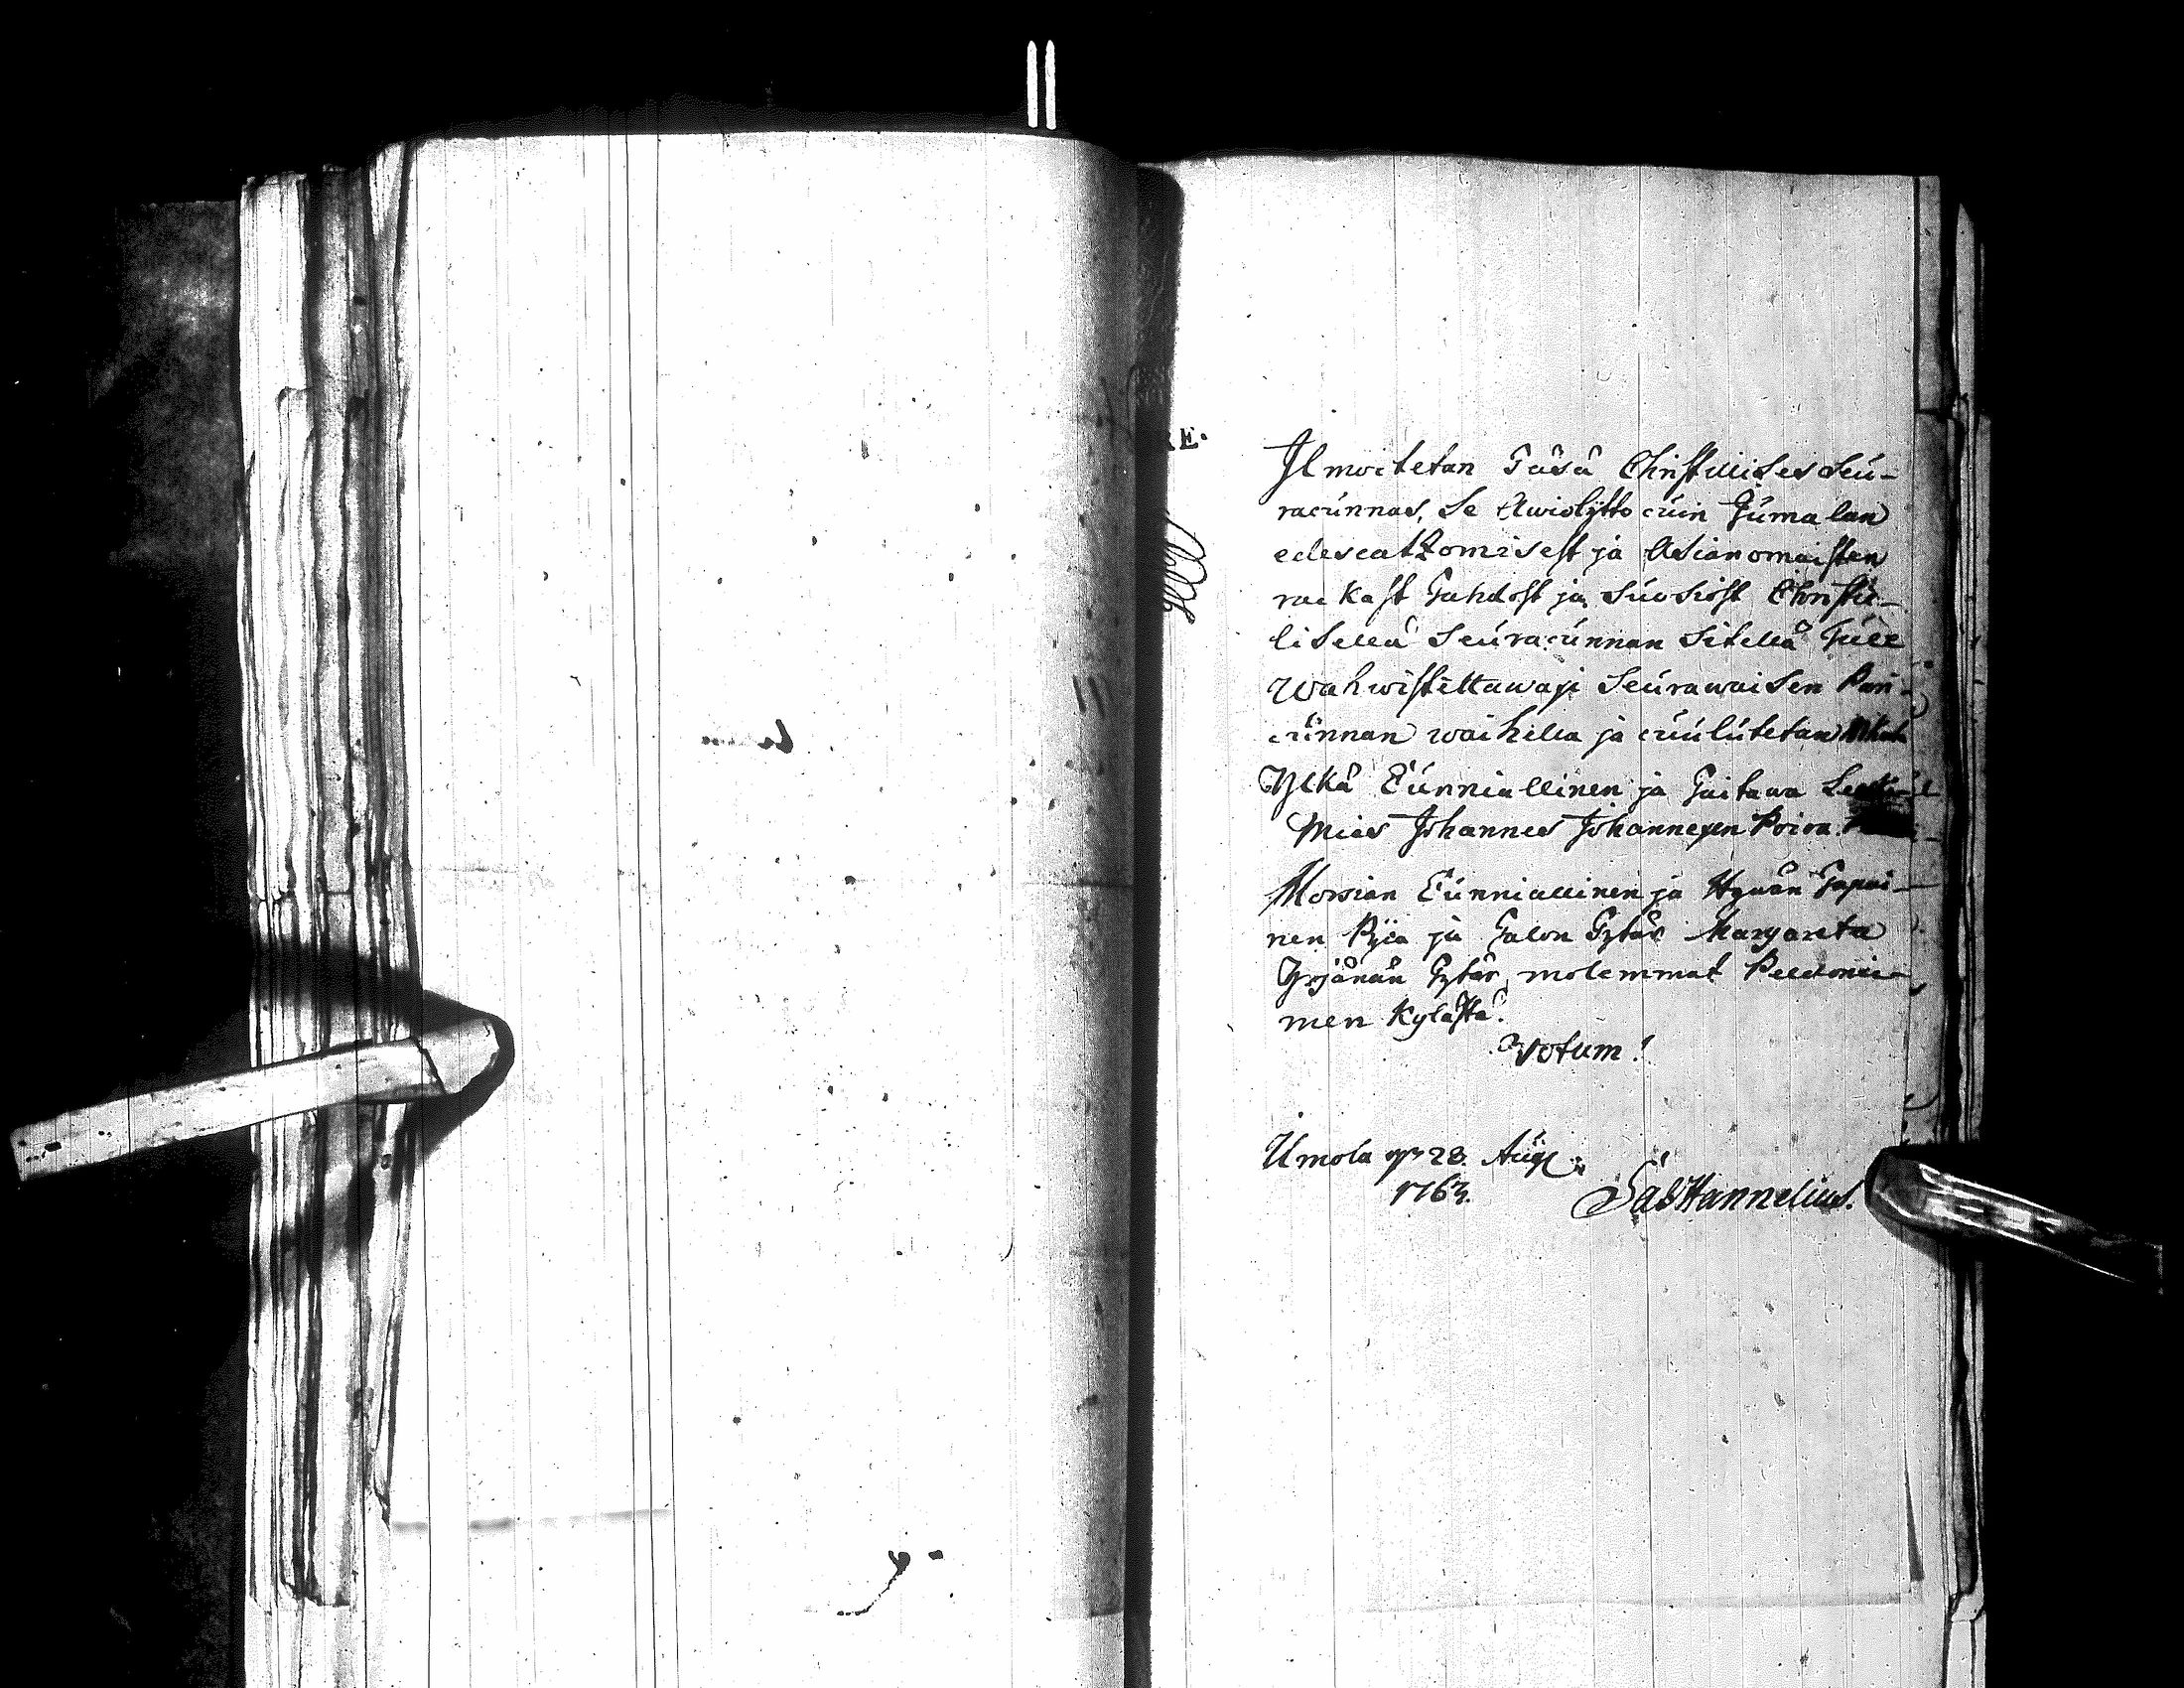 RE.
Ilmoitetan Täsä Christillises Seu-
racunnas, Se Awiolijtto cuin Jumalan
edescatzomisest ja Asianomaisten
rackast Tahdost ja Suosiost Christil-
lisellä Seuracunnan Sitellä Tule
wahwistettawaxi Seurawaisen Pari-
cunnan waihella ja cuulutetan
Ylkä Cunniallinen ja Taitawa
Mies Johannes Johannexen Poica
Morsian Cunniallinen ja Hywän Tapai-
nen Pijca ja Talon Tytär Margareta
Yrjänän Tytär, molemmat Peldonie-
men Kylästä.
Votum!
Umola 28. Aug:
1763.
Gab Hannelius.